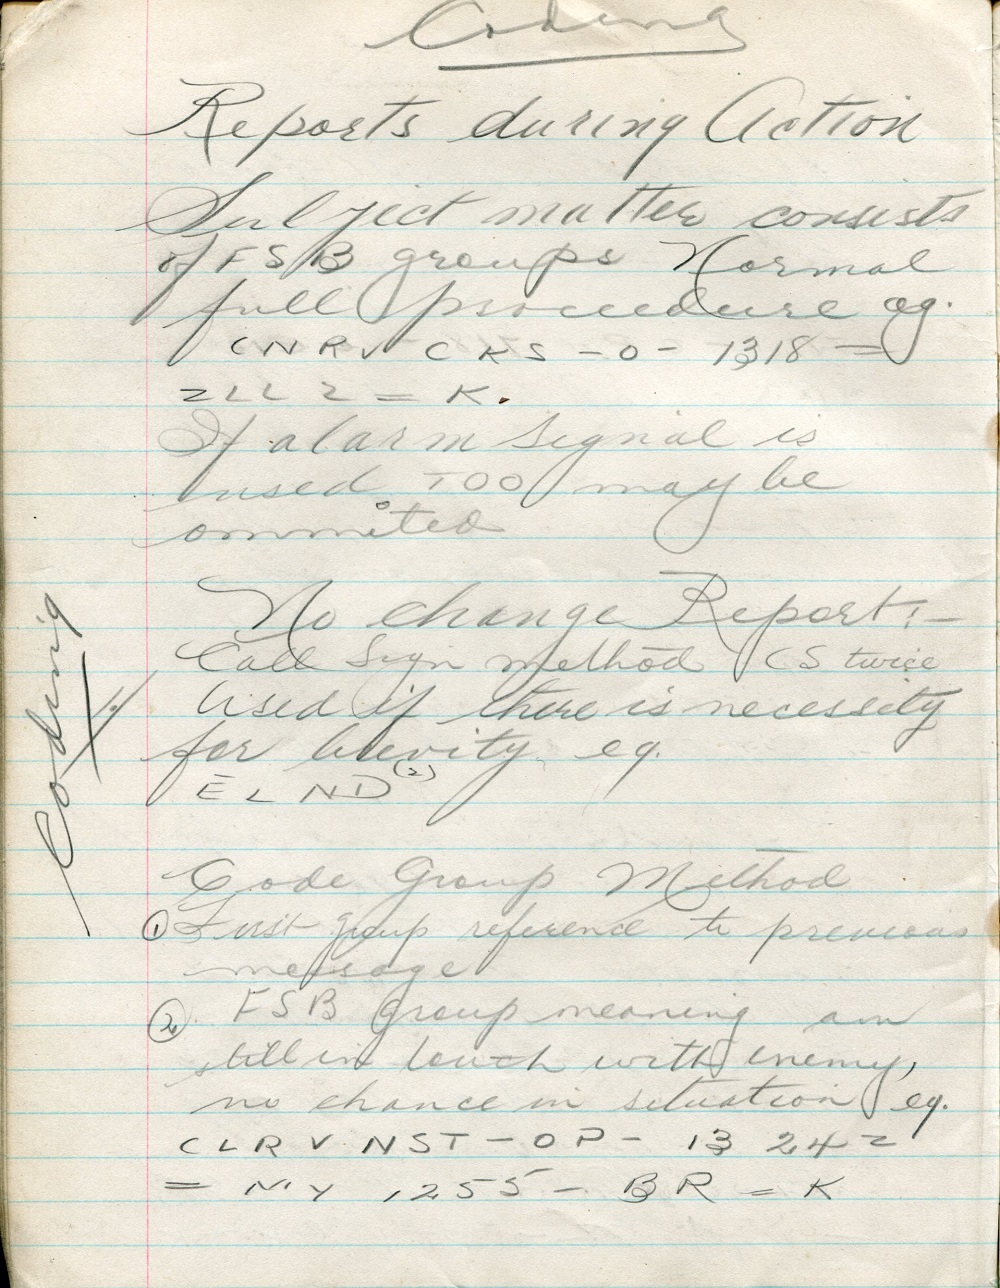 Coding
Reports during Action
Subject matter consists
of FSB groups Normal
full proceedure eg.
CNRV CKS - O - 1318 =
ZLL2 = K.
If alarm signal is
used TOO may be
ommited
No change Report :-
Call Sign method CS twice
Used if there is necessity
for brevity eg.
ELND (2)
Code Group Method
① First group reference to previous
message
② FSB group meaning am
still in touch with enemy,
no chance in situation eg.
CLRV NST - OP - 1324 =
= MY 1255 - BR = K
Coding